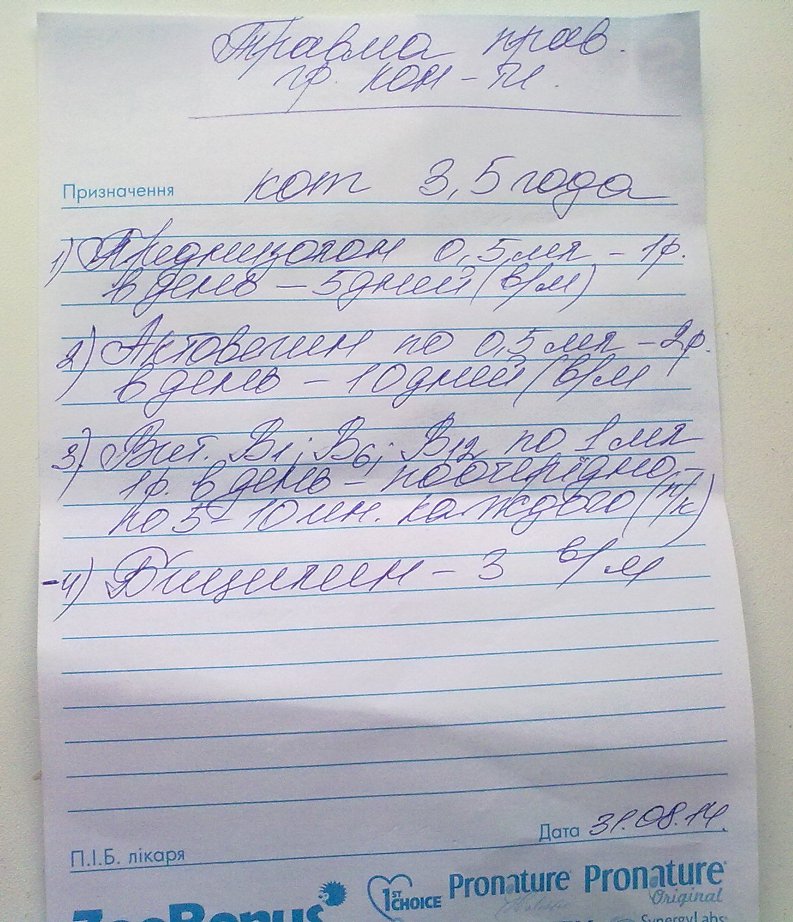 Травма прав.
гр. кон-ти.
Призначення кот 3,5 года
1) Преднизолон 0,5 мл – 1р.
в день – 5 дней (в/м)
2) Актовегин по 0,5 мл – 2р.
в день – 10 дней (в/м
3) Вит. B1; B6; B12 по 1 мл
1р. в день – поочерёдно –
по 5-10 ин. каждого (п/к)
-4) Бициллин – 3 в/м
Дата 31.08.14.
П.І.Б. лікаря
ZooBonus 1ST CHOICE Pronature Pronature
Original
SynergyLabs